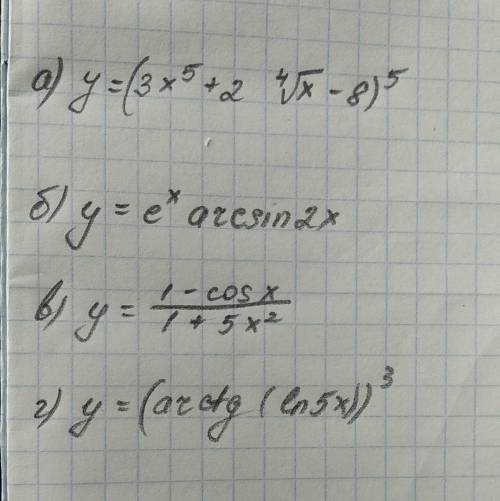 а) y = (3x⁵ + 2 ⁴√x - 8)⁵
б) y = eˣ arcsin2x
в) y = (1 - cosx)/(1 + 5x²)
г) y = (arctg (ln5x))³